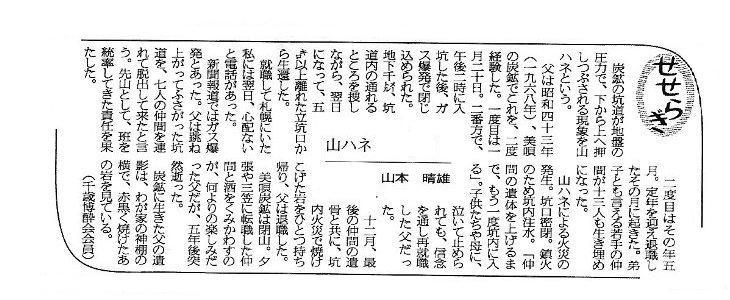 せせらぎ
山ハネ
山本 晴雄
炭鉱の坑道が地盤の
圧力で、下から上へ押
しつぶされる現象を山
ハネという。
父は昭和四十三年
(一九六八年)、美唄
の炭鉱でこれを、二度
経験した。一度目は一
月二十日。二番方で、
午後二時に入
坑した後、ガ
ス爆発で閉じ
込められた。
地下千㍍、坑
道内の通れる
ところを捜し
ながら、翌日
になって、五
㌔以上離れた立坑口か
ら生還した。
就職して札幌にいた
私には翌日、心配ない
と電話があった。
新聞報道ではガス爆
発とあった。父は跳ね
上がってふさがった坑
道を、七人の仲間を連
れて脱出して来たと言
う。先山として、班を
統率してきた責任を果
たした。
二度目はその年五
月。定年を迎え退職し
たその月に起きた。弟
子とも言える若手の仲
間が十三人も生き埋め
になった。
山ハネによる火災の
発生。坑口密閉。鎮火
のため坑内注水。「仲
間の遺体を上げるま
で、もう一度坑内に入
る」。子供たちや母に、
泣いて止めら
れても、信念
を通し再就職
した父だっ
た。
十二月、最
後の仲間の遺
骨と共に、坑
内火災で焼け
こげた岩をひとつ持ち
帰り、父は退職した。
美唄炭鉱は閉山。夕
張や三笠に転職した仲
間と酒をくみかわすの
が、何よりの楽しみだ
った父だが、五年後突
然逝った。
炭鉱に生きた父の遺
影は、わが家の神棚の
横で、赤黒く焼けたあ
の岩を見ている。
(千歳博酔会会員)